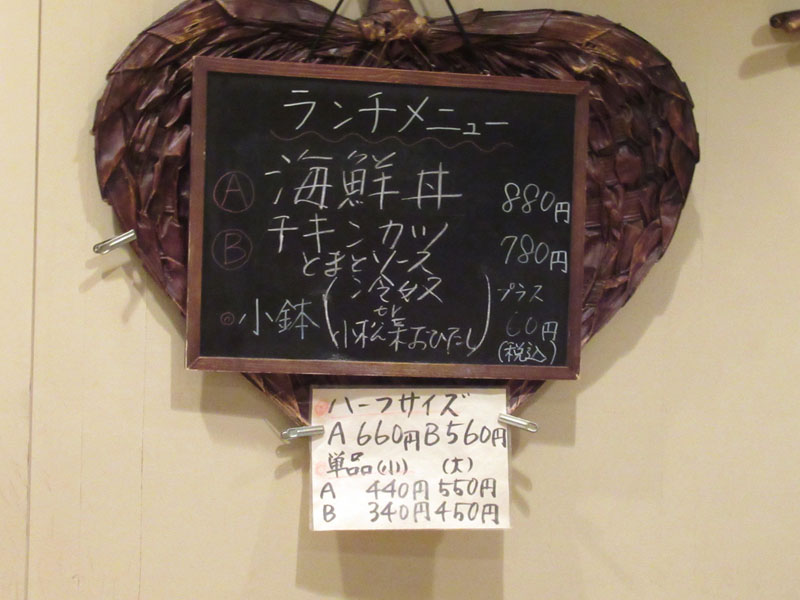 ランチメニュー
Ⓐ 海鮮丼 880円
Ⓑ チキンカツ 780円
とまとソース
小鉢(冷奴 or 小松菜おひたし) プラス
60円
(税込)
ハーフサイズ
A 660円 B 560円
単品(小) (大)
A 440円 550円
B 340円 450円